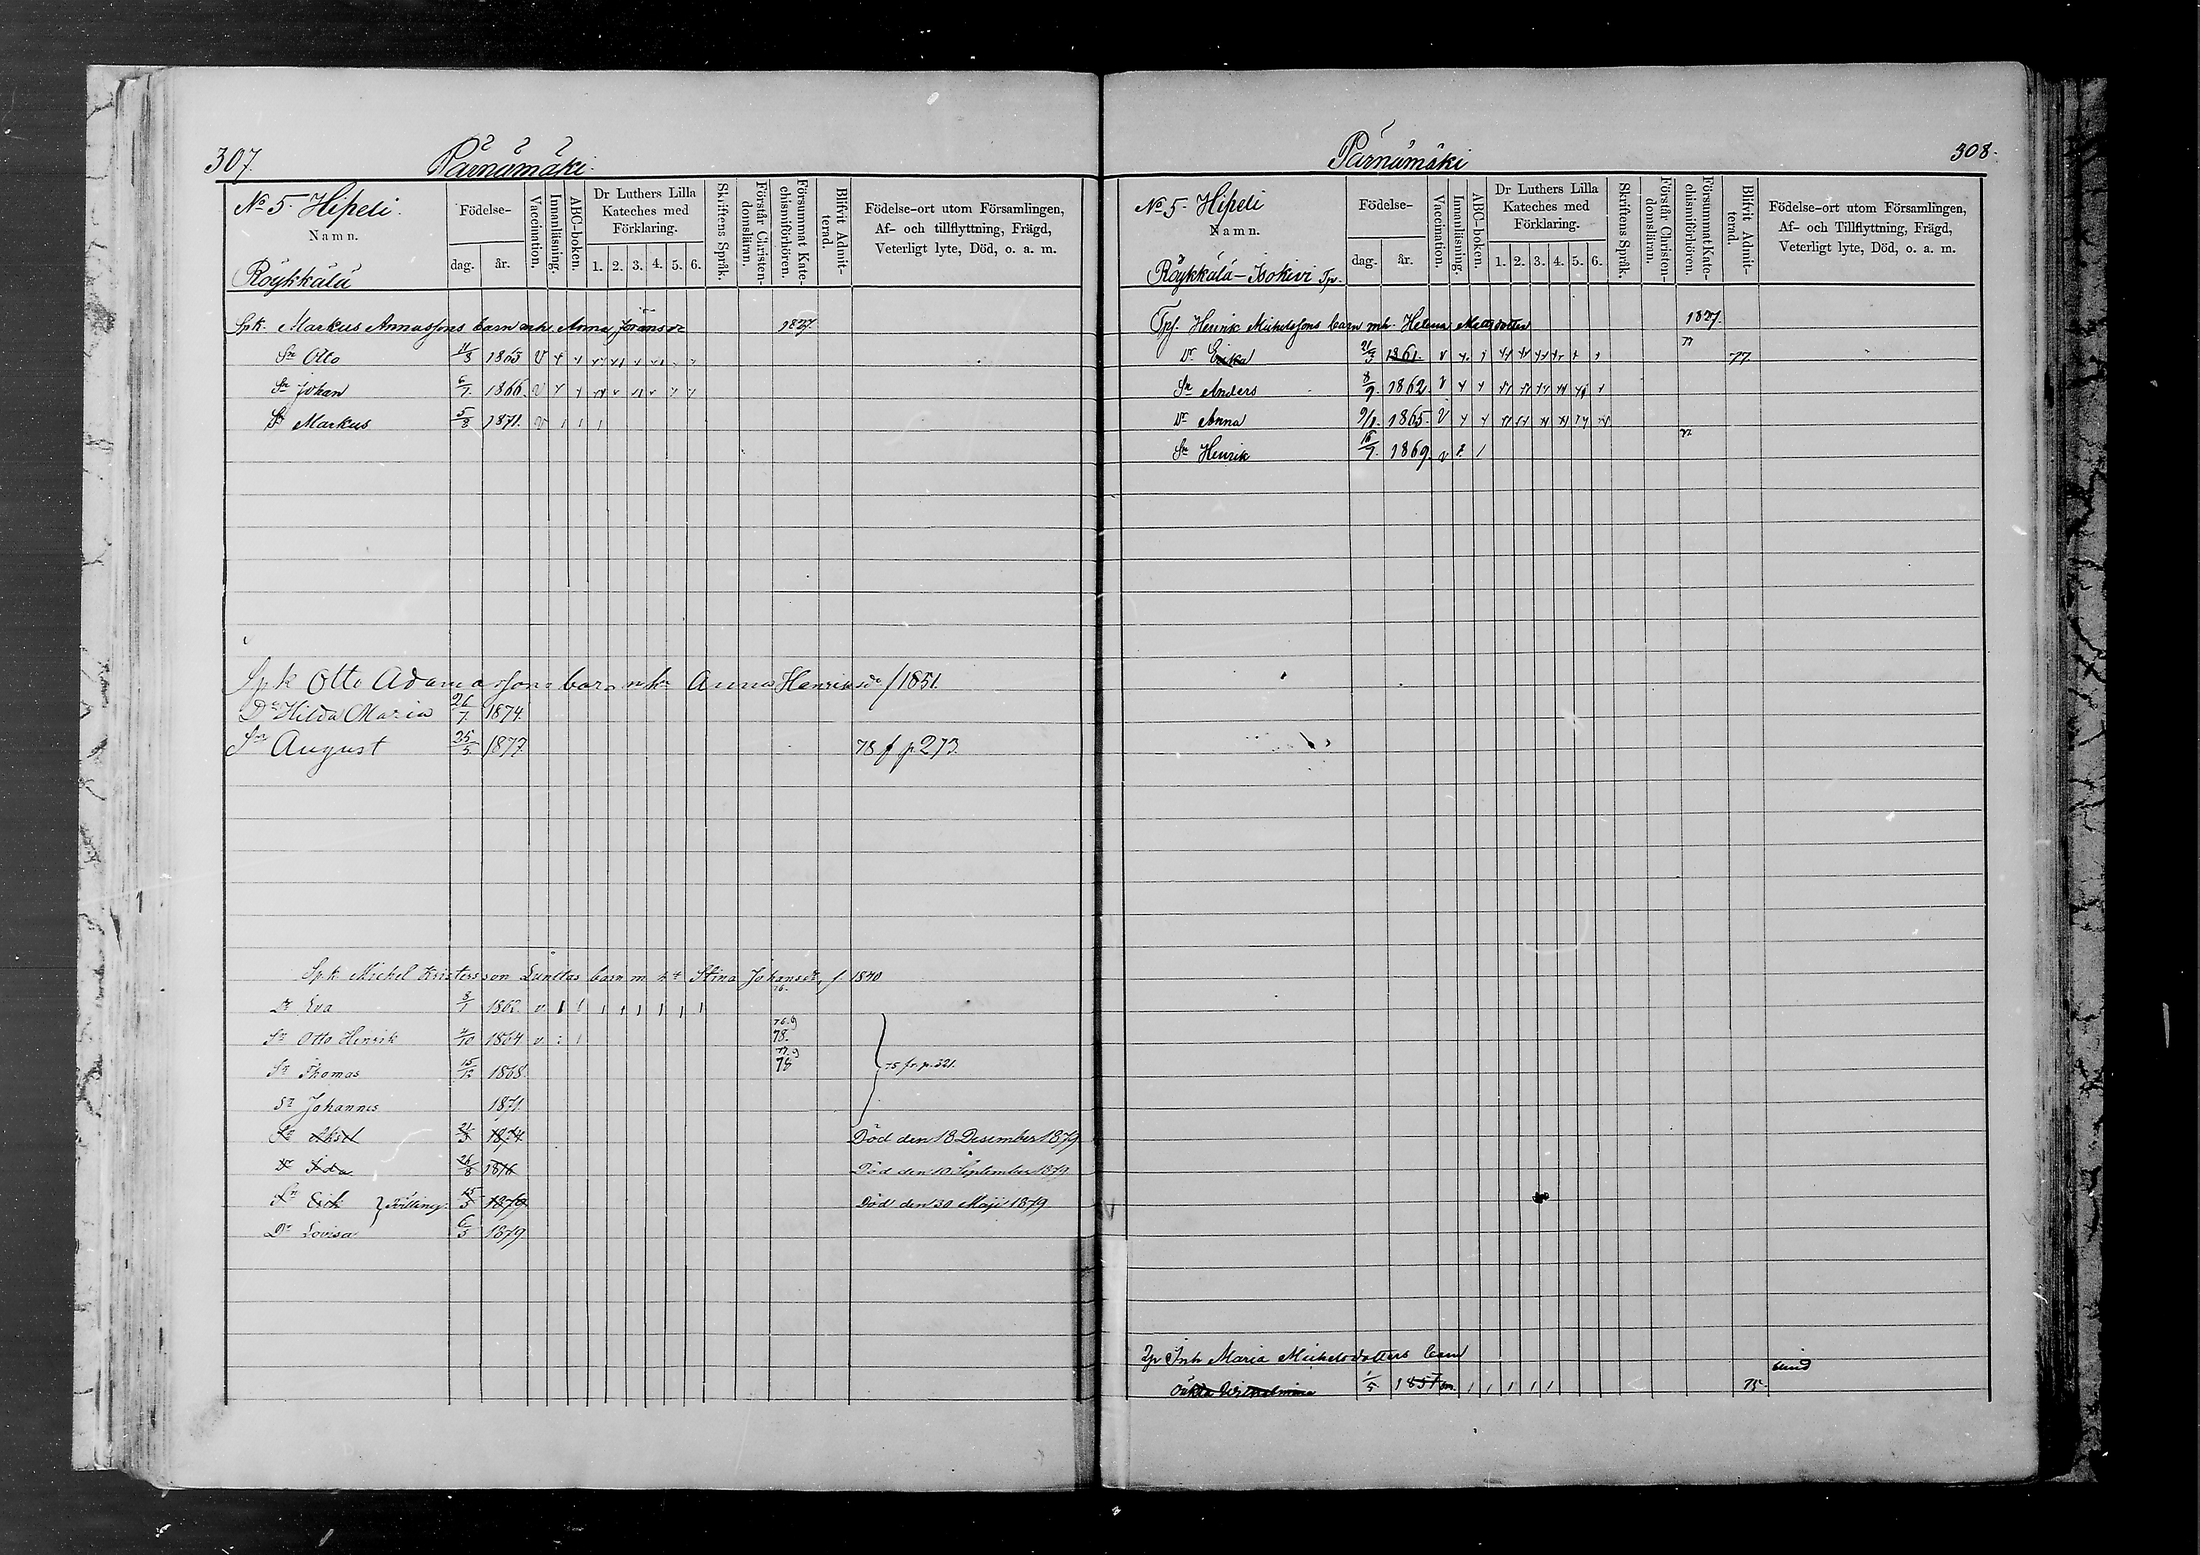 307.
Pärnämäki.
No 5. Hipeli.
Namn.
Röykkälä
Födelse-
dag. år.
Vaccination.
Innanläsning.
ABC-boken.
Dr Luthers Lilla
Kateches med
Förklaring.
1. 2. 3. 4. 5. 6.
Skriftens Språk.
Förstår Christen-
domsläran.
Försummat Kate-
chismiförhören.
Blifvit Admit-
terad.
Födelse-ort utom Församlingen,
Af- och tillflyttning, Frägd,
Veterligt lyte, Död, o. a. m.
Spk. Markus Annassons barn mh. Anna 1827.
Sn Otto 11/3 1863 V
Sn Johan 6/7. 1866. V
Sn Markus 5/8 1871. V
Spk Otto Adamssons barn mhu Anna Henriksdr f 1851.
Dr Hilda Maria 26/7 1874.
Sn August 25/5 1877. 78 f p 273.
Spk. Mickel Kristersson barn m hu Stina Johansdr, f. 1840
Dr Eva 3/1 1862. v. 76.
Sn Otto Henrik 4/10 1864 v. 76.9 78.
Sn Thomas 15/12 1868. 77.9 78 75 fr. p. 321.
Sn Johannes 1871.
Sn Aksel 21/3 1874 Död den 18 Desember 1879
Dr Ida 26/8 1876 Död den 10 September 1879
Sn Erik } Tvilling. 15/5 1879 Död den 30 Maji 1879
Dr Lovisa 6/5 1879
Pärnämäki
308.
No 5. Hipeli
Namn.
Röykkälä - Isokivi Tp.
Födelse-
dag. år.
Vaccination.
Innanläsning.
ABC-boken.
Dr Luthers Lilla
Kateches med
Förklaring.
1. 2. 3. 4. 5. 6.
Skriftens Språk.
Förstår Christen-
domsläran.
Försummat Kate-
chismiförhören.
Blifvit Admit-
terad.
Födelse-ort utom Församlingen,
Af- och Tillflyttning, Frägd,
Veterligt lyte, Död, o. a. m.
Tpf. Henrik Michelssons barn mh. Helena Mattsdotter 1827.
Dr Erika 21/3 1861. v 77 77
Sn Anders 8/9. 1862. V
Dr Anna 9/1. 1865. V
Sn Henrik 16/7. 1869. v
Tp Inh Maria Michelsdotters barn
Wilhelmina 1/5 1857 75 blind